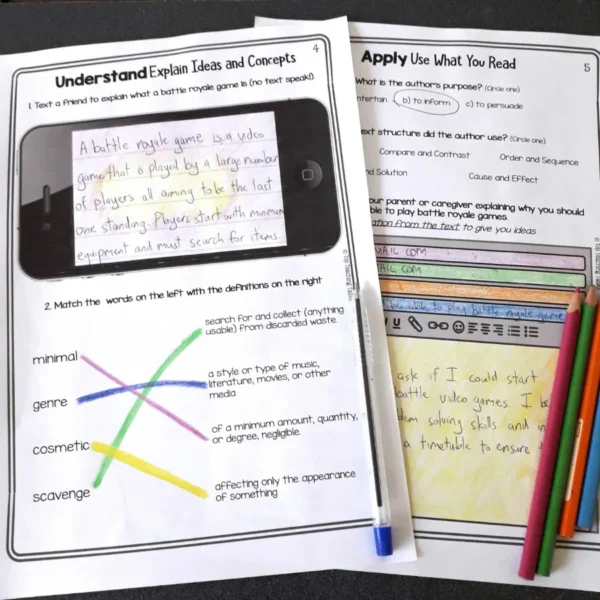 4
Understand Explain Ideas and Concepts
1. Text a friend to explain what a battle royale game is (no text speak!).
A battle royale game is a video
game that is played by a large number
of players all aiming to be the last
one standing. Players start with minimum
equipment and must search for items.
2. Match the words on the left with the definitions on the right
minimal
genre
cosmetic
scavenge
search for and collect (anything
usable) from discarded waste.
a style or type of music,
literature, movies, or other
media
of a minimum amount, quantity,
or degree, negligible.
affecting only the appearance
of something
5
Apply Use What You Read
What is the author's purpose? (Circle one)
entertain b) to inform c) to persuade
text structure did the author use? (Circle one)
Compare and Contrast Order and Sequence
Solution Cause and Effect
our parent or caregiver explaining why you should
ble to play battle royale games.
ation from the text to give you ideas
MAIL.COM
MAIL.COM
be able to play battle royale game
U
ask if I could start
battle video games. I
solving skills and
a timetable to ensure